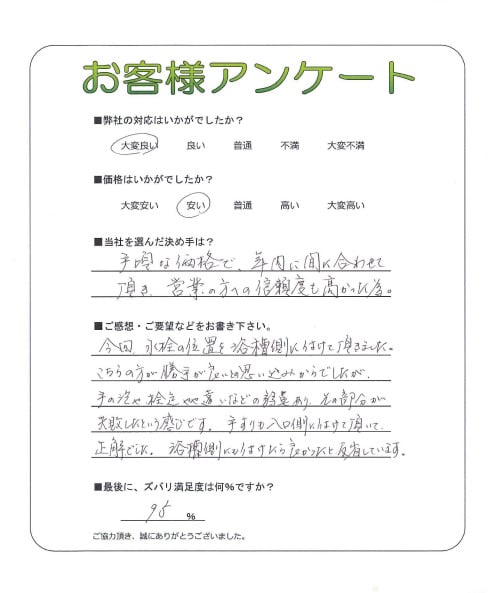 お客様アンケート
■弊社の対応はいかがでしたか？
大変良い 良い 普通 不満 大変不満
■価格はいかがでしたか？
大変安い 安い 普通 高い 大変高い
■当社を選んだ決め手は？
手頃な価格で、年内に間に合わせて
頂き、営業の方への信頼度も高かった為。
■ご感想・ご要望などをお書き下さい。
今回、水栓の位置を浴槽側に付けて頂きました。
こちらの方が勝手が良いとの思い込みからでしたが、
手の泡や などの 、その部分が
失敗したという感じです。手すりも入口側に付けて頂いて、
正解でした。浴槽側にも付けたら良かったと反省しています。
■最後に、ズバリ満足度は何％ですか？
95 %
ご協力頂き、誠にありがとうございました。